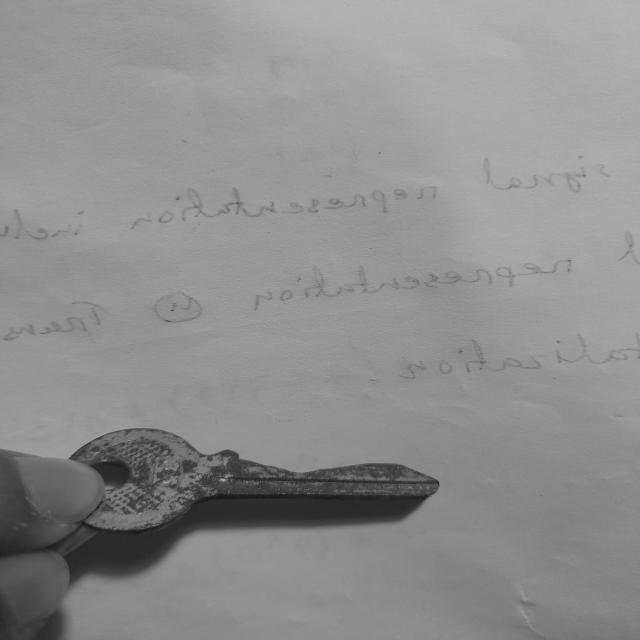 signal representation inclu
l representation ii) Trans
talization